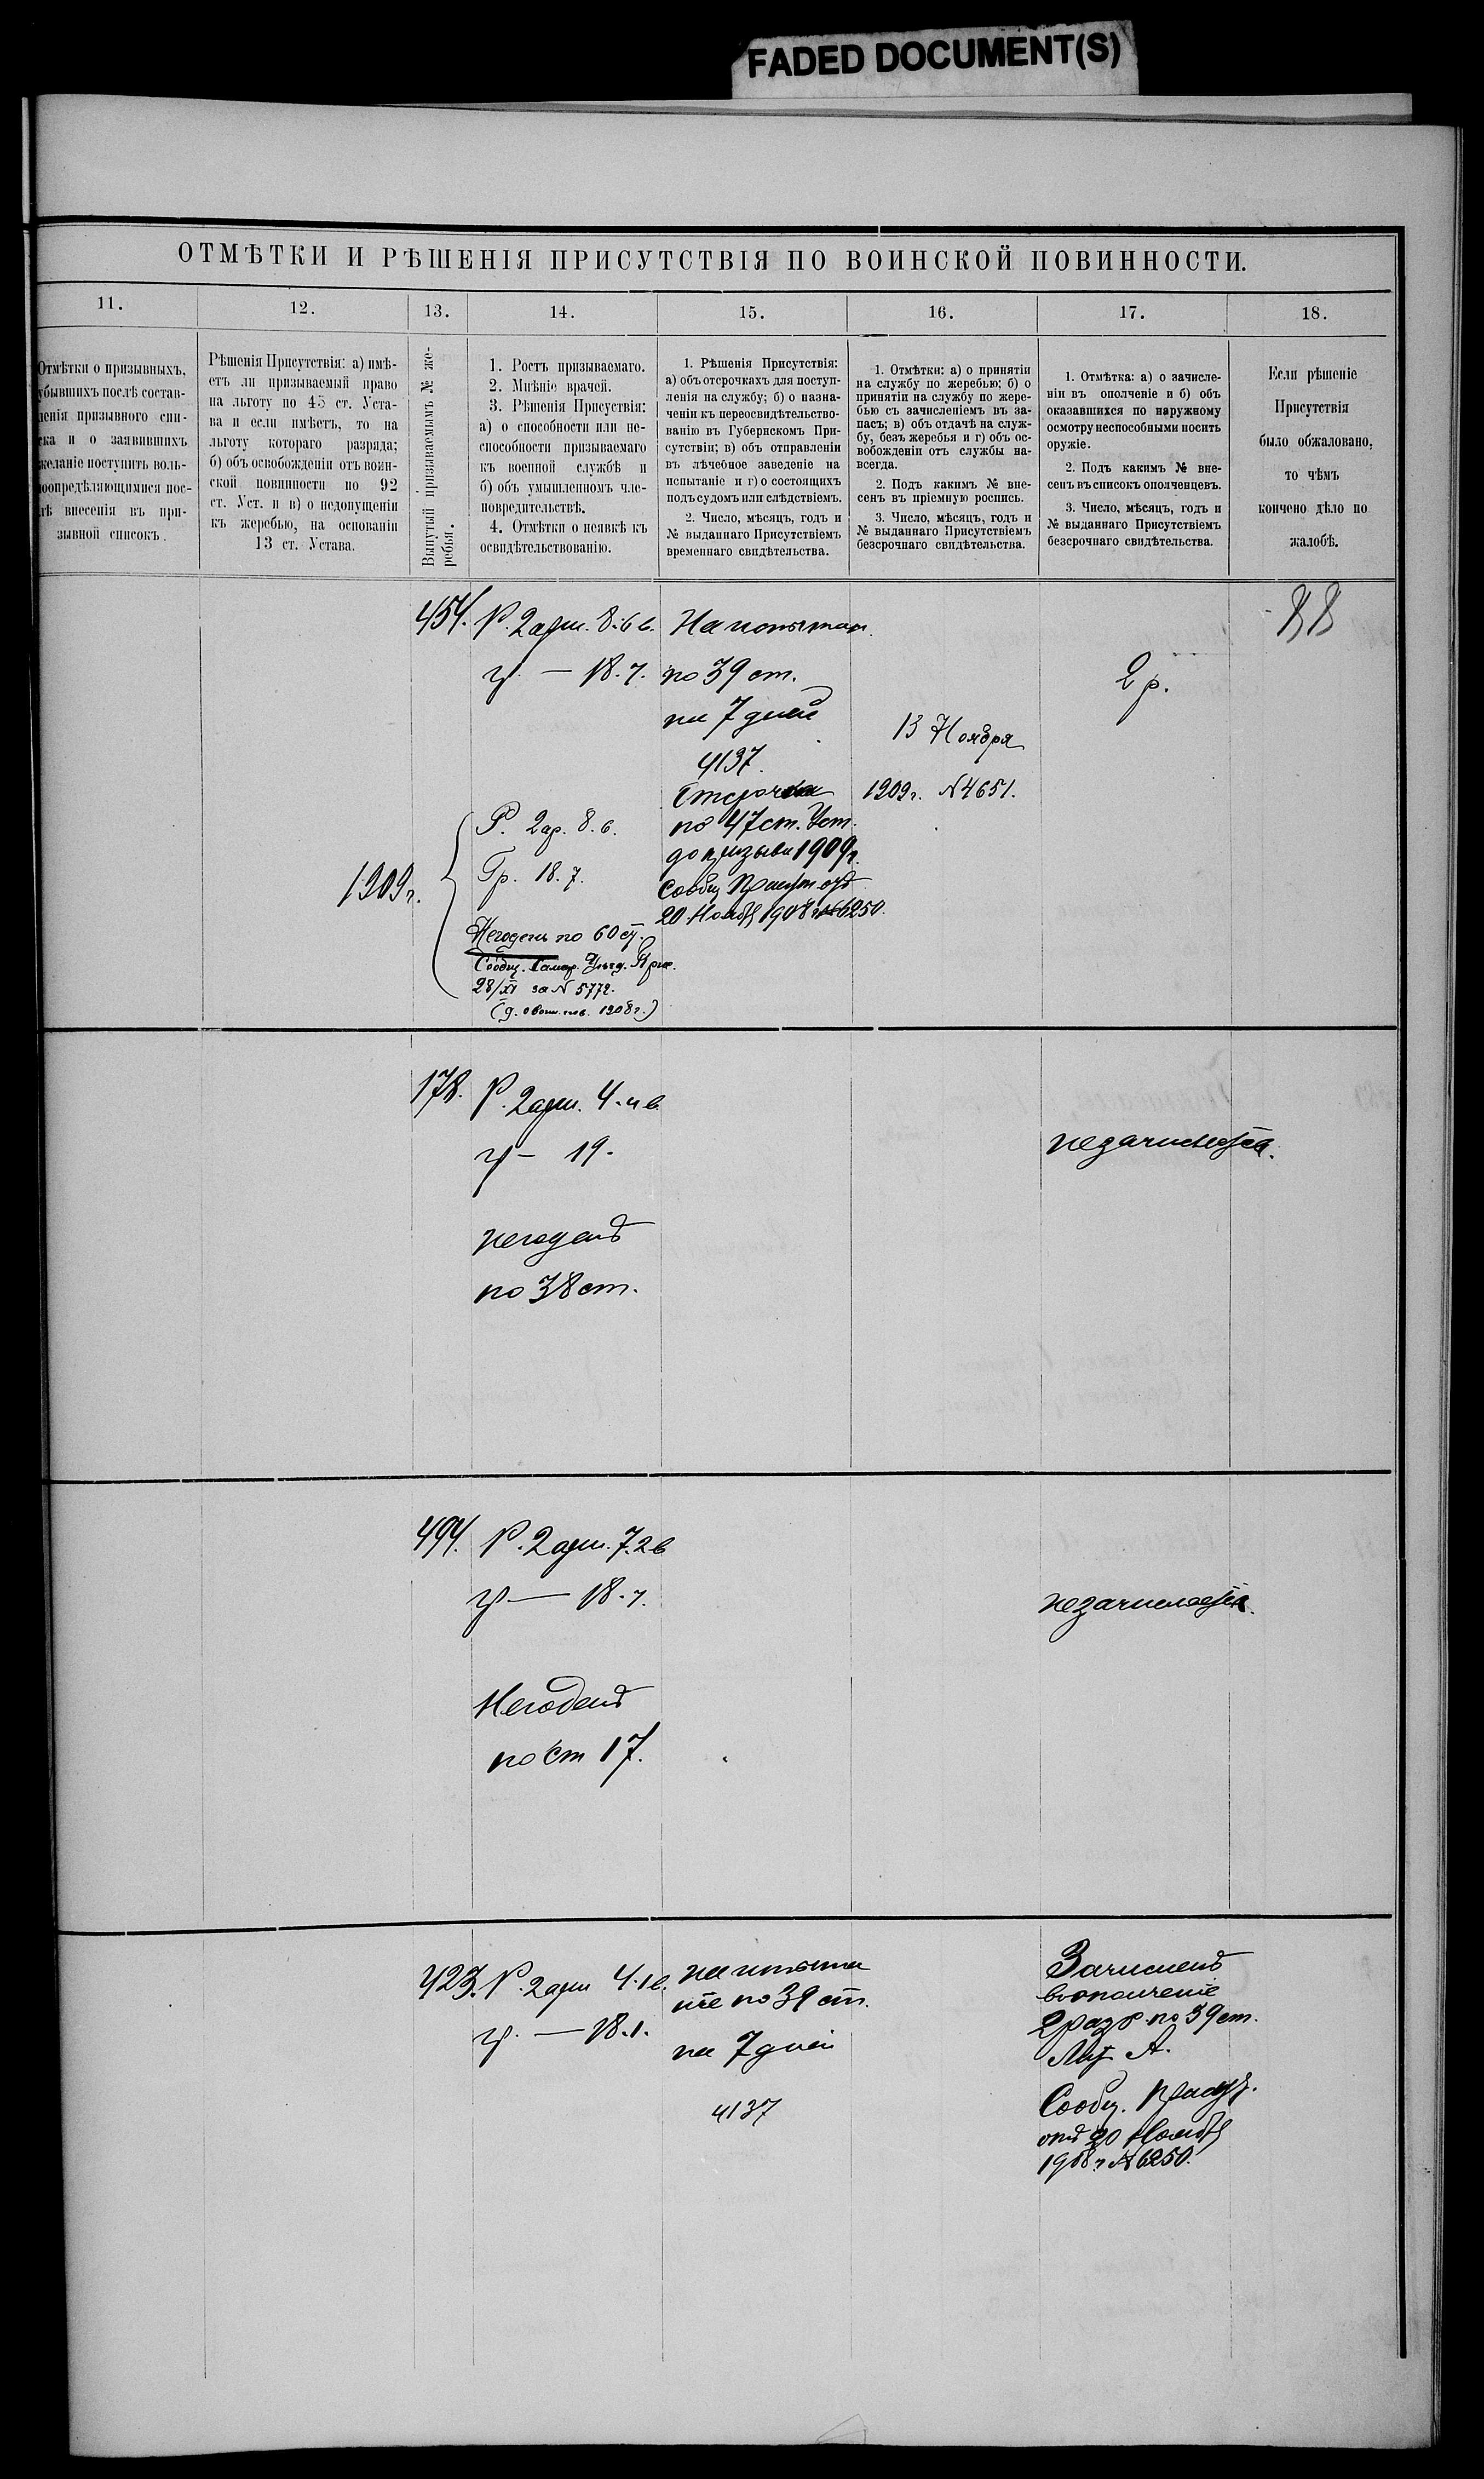 FADED DOCUMENT(S)
ОТМѢТКИ И РѢШЕНІЯ ПРИСУТСТВІЯ ПО ВОИНСКОЙ ПОВИННОСТИ.
11.
12.
13.
14.
15.
16.
17.
18.
Отмѣтки о призывныхъ,
убывшихъ послѣ состав-
ленія призывного спи-
ска и о заявившихъ
желаніе поступить воль-
ноопредѣляющимися пос-
лѣ внесенія въ при-
зывной списокъ.
Рѣшенія Присутствія: а) имѣ-
етъ ли призываемый право
на льготу по 45 ст. Уста-
ва и если имѣетъ, то на
льготу котораго разряда;
б) объ освобожденіи отъ воин-
ской повинности по 92
ст. Уст. и в) о недопущеніи
къ жеребью, на основаніи
13 ст. Устава.
Вынутый призываемымъ № же-
ребья.
1. Ростъ призываемаго.
2. Мнѣніе врачей.
3. Рѣшенія Присуствія:
а) о способности или не-
способности призываемаго
къ военной службѣ и
б) объ умышленномъ чле-
новредительствѣ.
4. Отмѣтки о неявкѣ къ
освидѣтельствованію.
1. Рѣшенія Присутствія:
а) объ отсрочкахъ для поступ-
ленія на службу; б) о назна-
ченіи къ переосвидѣтельство-
ванію въ Губернскомъ При-
сутствіи; в) объ отправленіи
въ лѣчебное заведеніе на
испытаніе и г) о состоящихъ
подъ судомъ или слѣдствіемъ.
2. Число, мѣсяцъ, годъ и
№ выданнаго Присутствіемъ
временнаго свидѣтельства.
1. Отмѣтки: а) о принятіи
на службу по жеребью; б) о
принятіи на службу по жере-
бью съ зачисленіемъ въ за-
пасъ; в) объ отдачѣ на служ-
бу, безъ жеребья и г) объ ос-
вобожденіи отъ службы на-
всегда.
2. Подъ какимъ № вне-
сенъ въ пріемную роспись.
3. Число, мѣсяцъ, годъ и
№ выданнаго Присутствіемъ
безсрочнаго свидѣтельства.
1. Отмѣтка: а) о зачисле-
ніи въ ополченіе и б) объ
оказавшихся по наружному
осмотру неспособными носить
оружіе.
2. Подъ какимъ № вне-
сенъ въ списокъ ополченцевъ.
3. Число, мѣсяцъ, годъ и
№ выданнаго Присутствіемъ
безсрочнаго свидѣтельства.
Если рѣшеніе
Присутствія
было обжаловано,
то чѣмъ
кончено дѣло по
жалобѣ.
454.
Р. 2 арш. 8.6 в.
гр. — 18.7.
1909 г.
Р. 2 ар. 8.6.
Гр. 18.7.
Негоденъ по 60 ст.
Сообщ. Самар. Уѣзд. Прис.
28/XI за № 5772.
(д. о воин. пов. 1908 г.)
На испытан.
по 39 ст.
на 7 дней
4137.
Отсрочка
по 47 ст. Уст.
до призыва 1909 г.
Сообщ. Присут. отъ
20 Нояб 1908 г. № 6250.
13 Ноября
1909 г. № 4651.
2 р.
178.
Р. 2 арш. 4.4 в.
гр — 19.
негоденъ
по 38 ст.
незачисляется.
494.
Р. 2 арш. 7.2 в
гр — 18.7.
Негоденъ
по ст 17.
незачисляется.
423.
Р. 2 арш 4.1 в.
гр. — 18.1.
на испыта
ніе по 39 ст.
на 7 дней
4137
Зачисленъ
въ ополченіе
2 разр. по 39 ст.
Лит А.
Сообщ. Присут.
отъ 20 Нояб
1908 г. № 6250.